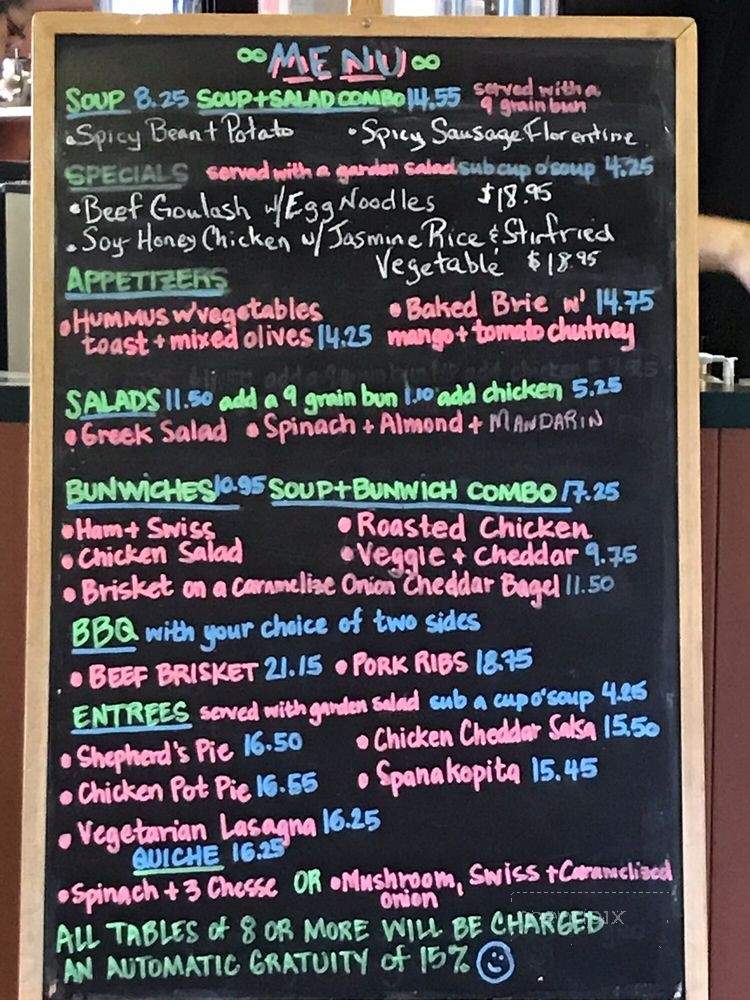 ∞ MENU ∞
SOUP 8.25 SOUP+SALAD COMBO 14.55 served with a 9 grain bun
• Spicy Bean + Potato • Spicy Sausage Florentine
SPECIALS served with a garden salad sub cup o'soup 4.25
• Beef Goulash w/ Egg Noodles $18.95
• Soy-Honey Chicken w/ Jasmine Rice & Stirfried
Vegetable $18.95
APPETIZERS
• HUMMUS w'vegetables • Baked Brie w' 14.75
toast + mixed olives 14.25 mango + tomato chutney
SALADS 11.50 add a 9 grain bun 1.10 add chicken 5.25
• Greek Salad • Spinach + Almond + MANDARIN
BUNWICHES 10.95 SOUP+BUNWICH COMBO 17.25
• Ham + Swiss • Roasted Chicken
• Chicken Salad • Veggie + Cheddar 9.75
• Brisket on a Caramelize Onion Cheddar Bagel 11.50
BBQ with your choice of two sides
• BEEF BRISKET 21.15 • PORK RIBS 18.75
ENTREES served with garden salad sub a cup o'soup 4.25
• Shepherd's Pie 16.50 • Chicken Cheddar Salsa 15.50
• Chicken Pot Pie 16.55 • Spanakopita 15.45
• Vegetarian Lasagna 16.25
QUICHE 16.25
• Spinach + 3 Chesse OR • Mushroom, Swiss + Caramelized
onion
ALL TABLES of 8 OR MORE WILL BE CHARGED
AN AUTOMATIC GRATUITY of 15% ☺